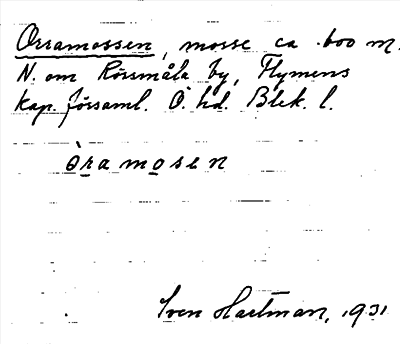 Orramossen, mosse ca 600 m.
N. om Rörsmåla by, Flymens
kap. församl. Ö. hd. Blek. l.
òramosen
Sven Hartman, 1931